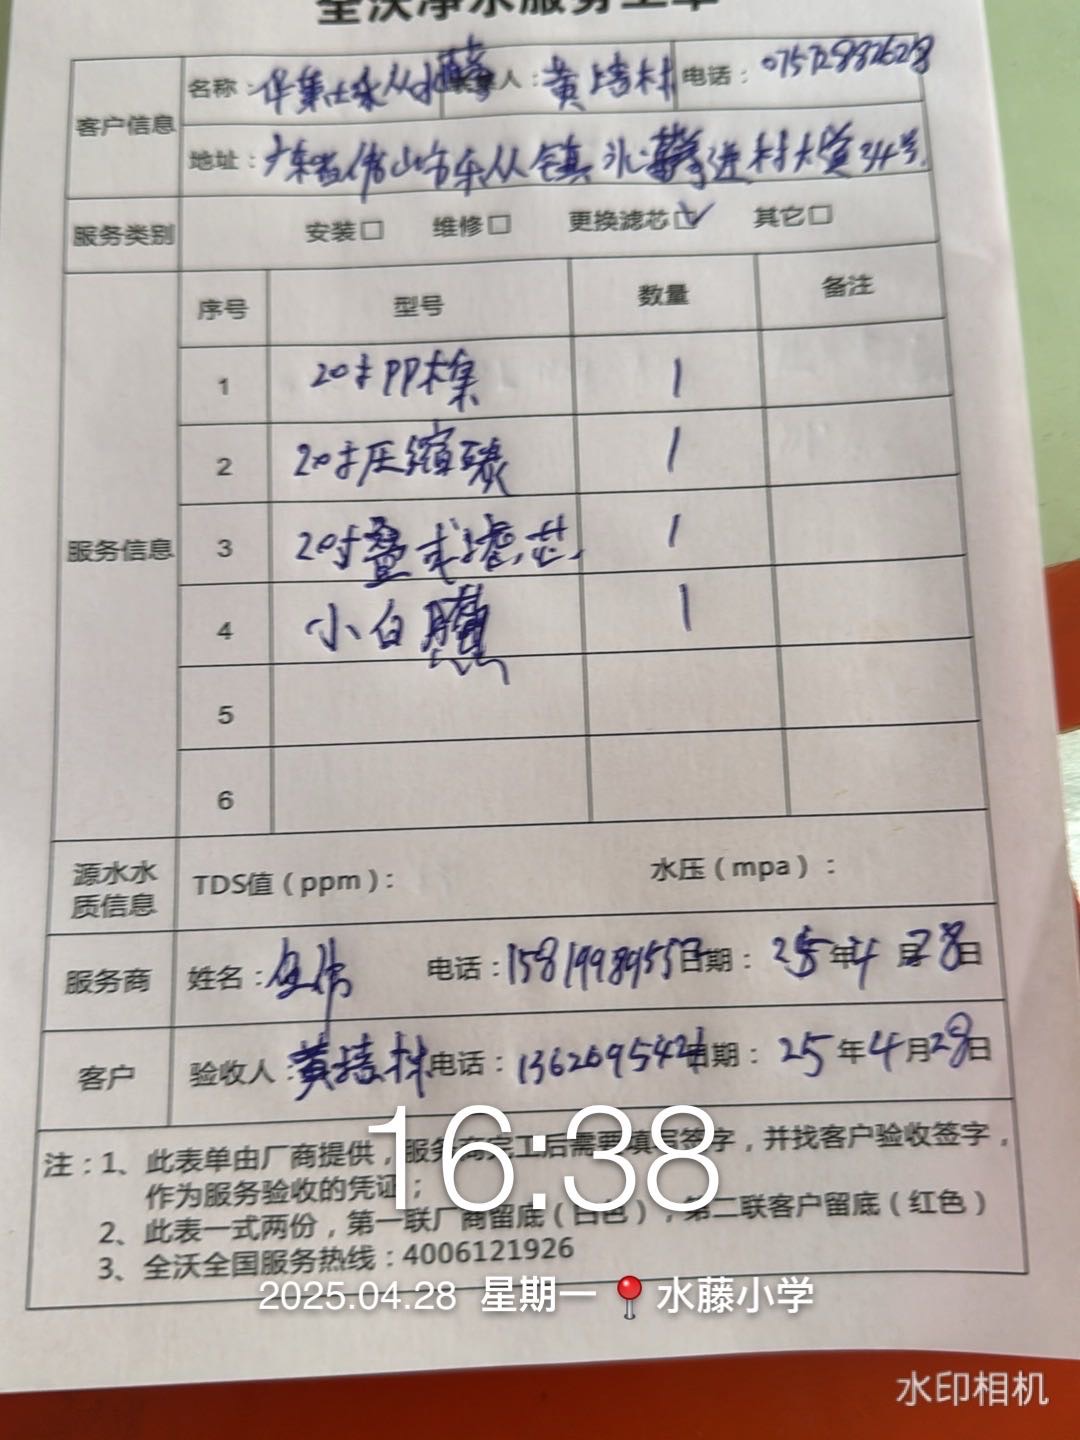 全沃净水服务工单
客户信息 名称： 人：黄培林 电话：07572882628
地址：广东省佛山市乐从镇水藤 进村大道34号
服务类别 安装□ 维修□ 更换滤芯☑ 其它□
服务信息 序号 型号 数量 备注
1 20寸PP棉 1
2 20寸压缩碳 1
3 20寸叠式滤芯 1
4 小白 1
5
6
源水水质信息 TDS值（ppm）： 水压（mpa）：
服务商 姓名： 电话： 日期：25年4月28日
客户 验收人：黄培林 电话： 日期：25年4月28日
注：1、此表单由厂商提供，服务商完工后需要填写签字，并找客户验收签字，
作为服务验收的凭证；
2、此表一式两份，第一联厂商留底（白色），第二联客户留底（红色）
3、全沃全国服务热线：4006121926
16:38
2025.04.28 星期一 水藤小学
水印相机